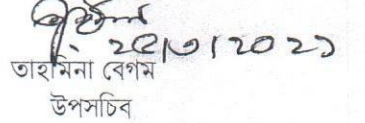 ২৫/৩/২০২১
তাহমিনা বেগম
উপসচিব